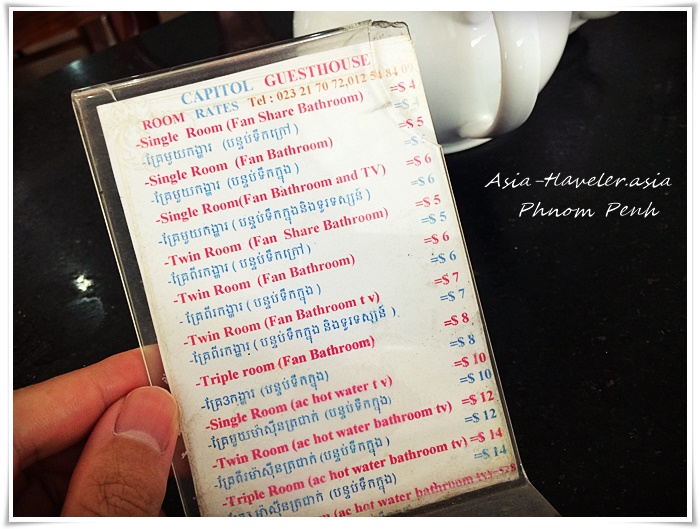 CAPITOL GUESTHOUSE
ROOM RATES Tel : 023 21 70 72,012 54 84 09
-Single Room (Fan Share Bathroom) =$ 4
-គ្រែមួយកង្ហារ (បន្ទប់ទឹកក្រៅ) =$ 4
-Single Room (Fan Bathroom) =$ 5
-គ្រែមួយកង្ហារ (បន្ទប់ទឹកក្នុង) =$ 5
-Single Room(Fan Bathroom and TV) =$ 6
-គ្រែមួយកង្ហារ (បន្ទប់ទឹកក្នុងនិងទូរទស្សន៍) =$ 6
-Twin Room (Fan Share Bathroom) =$ 5
-គ្រែពីរកង្ហារ (បន្ទប់ទឹកក្រៅ) =$ 5
-Twin Room (Fan Bathroom) =$ 6
-គ្រែពីរកង្ហារ (បន្ទប់ទឹកក្នុង) =$ 6
-Twin Room (Fan Bathroom t v) =$ 7
-គ្រែពីរកង្ហារ (បន្ទប់ទឹកក្នុង និងទូរទស្សន៍ ) =$ 7
-Triple room (Fan Bathroom) =$ 8
-គ្រែ3កង្ហារ (បន្ទប់ទឹកក្នុង) =$ 8
-Single Room (ac hot water t v) =$ 10
-គ្រែមួយម៉ាស៊ីនត្រជាក់ (បន្ទប់ទឹកក្នុង) =$ 10
-Twin Room (ac hot water bathroom tv) =$ 12
-គ្រែពីរម៉ាស៊ីនត្រជាក់ (បន្ទប់ទឹកក្នុង ) =$ 12
-Triple Room (ac hot water bathroom tv) =$ 14
-គ្រែ3 ម៉ាស៊ីនត្រជាក់ (បន្ទប់ទឹកក្នុង) =$ 14
(ac hot water bathroom tv)
Asia-Traveler.asia
Phnom Penh